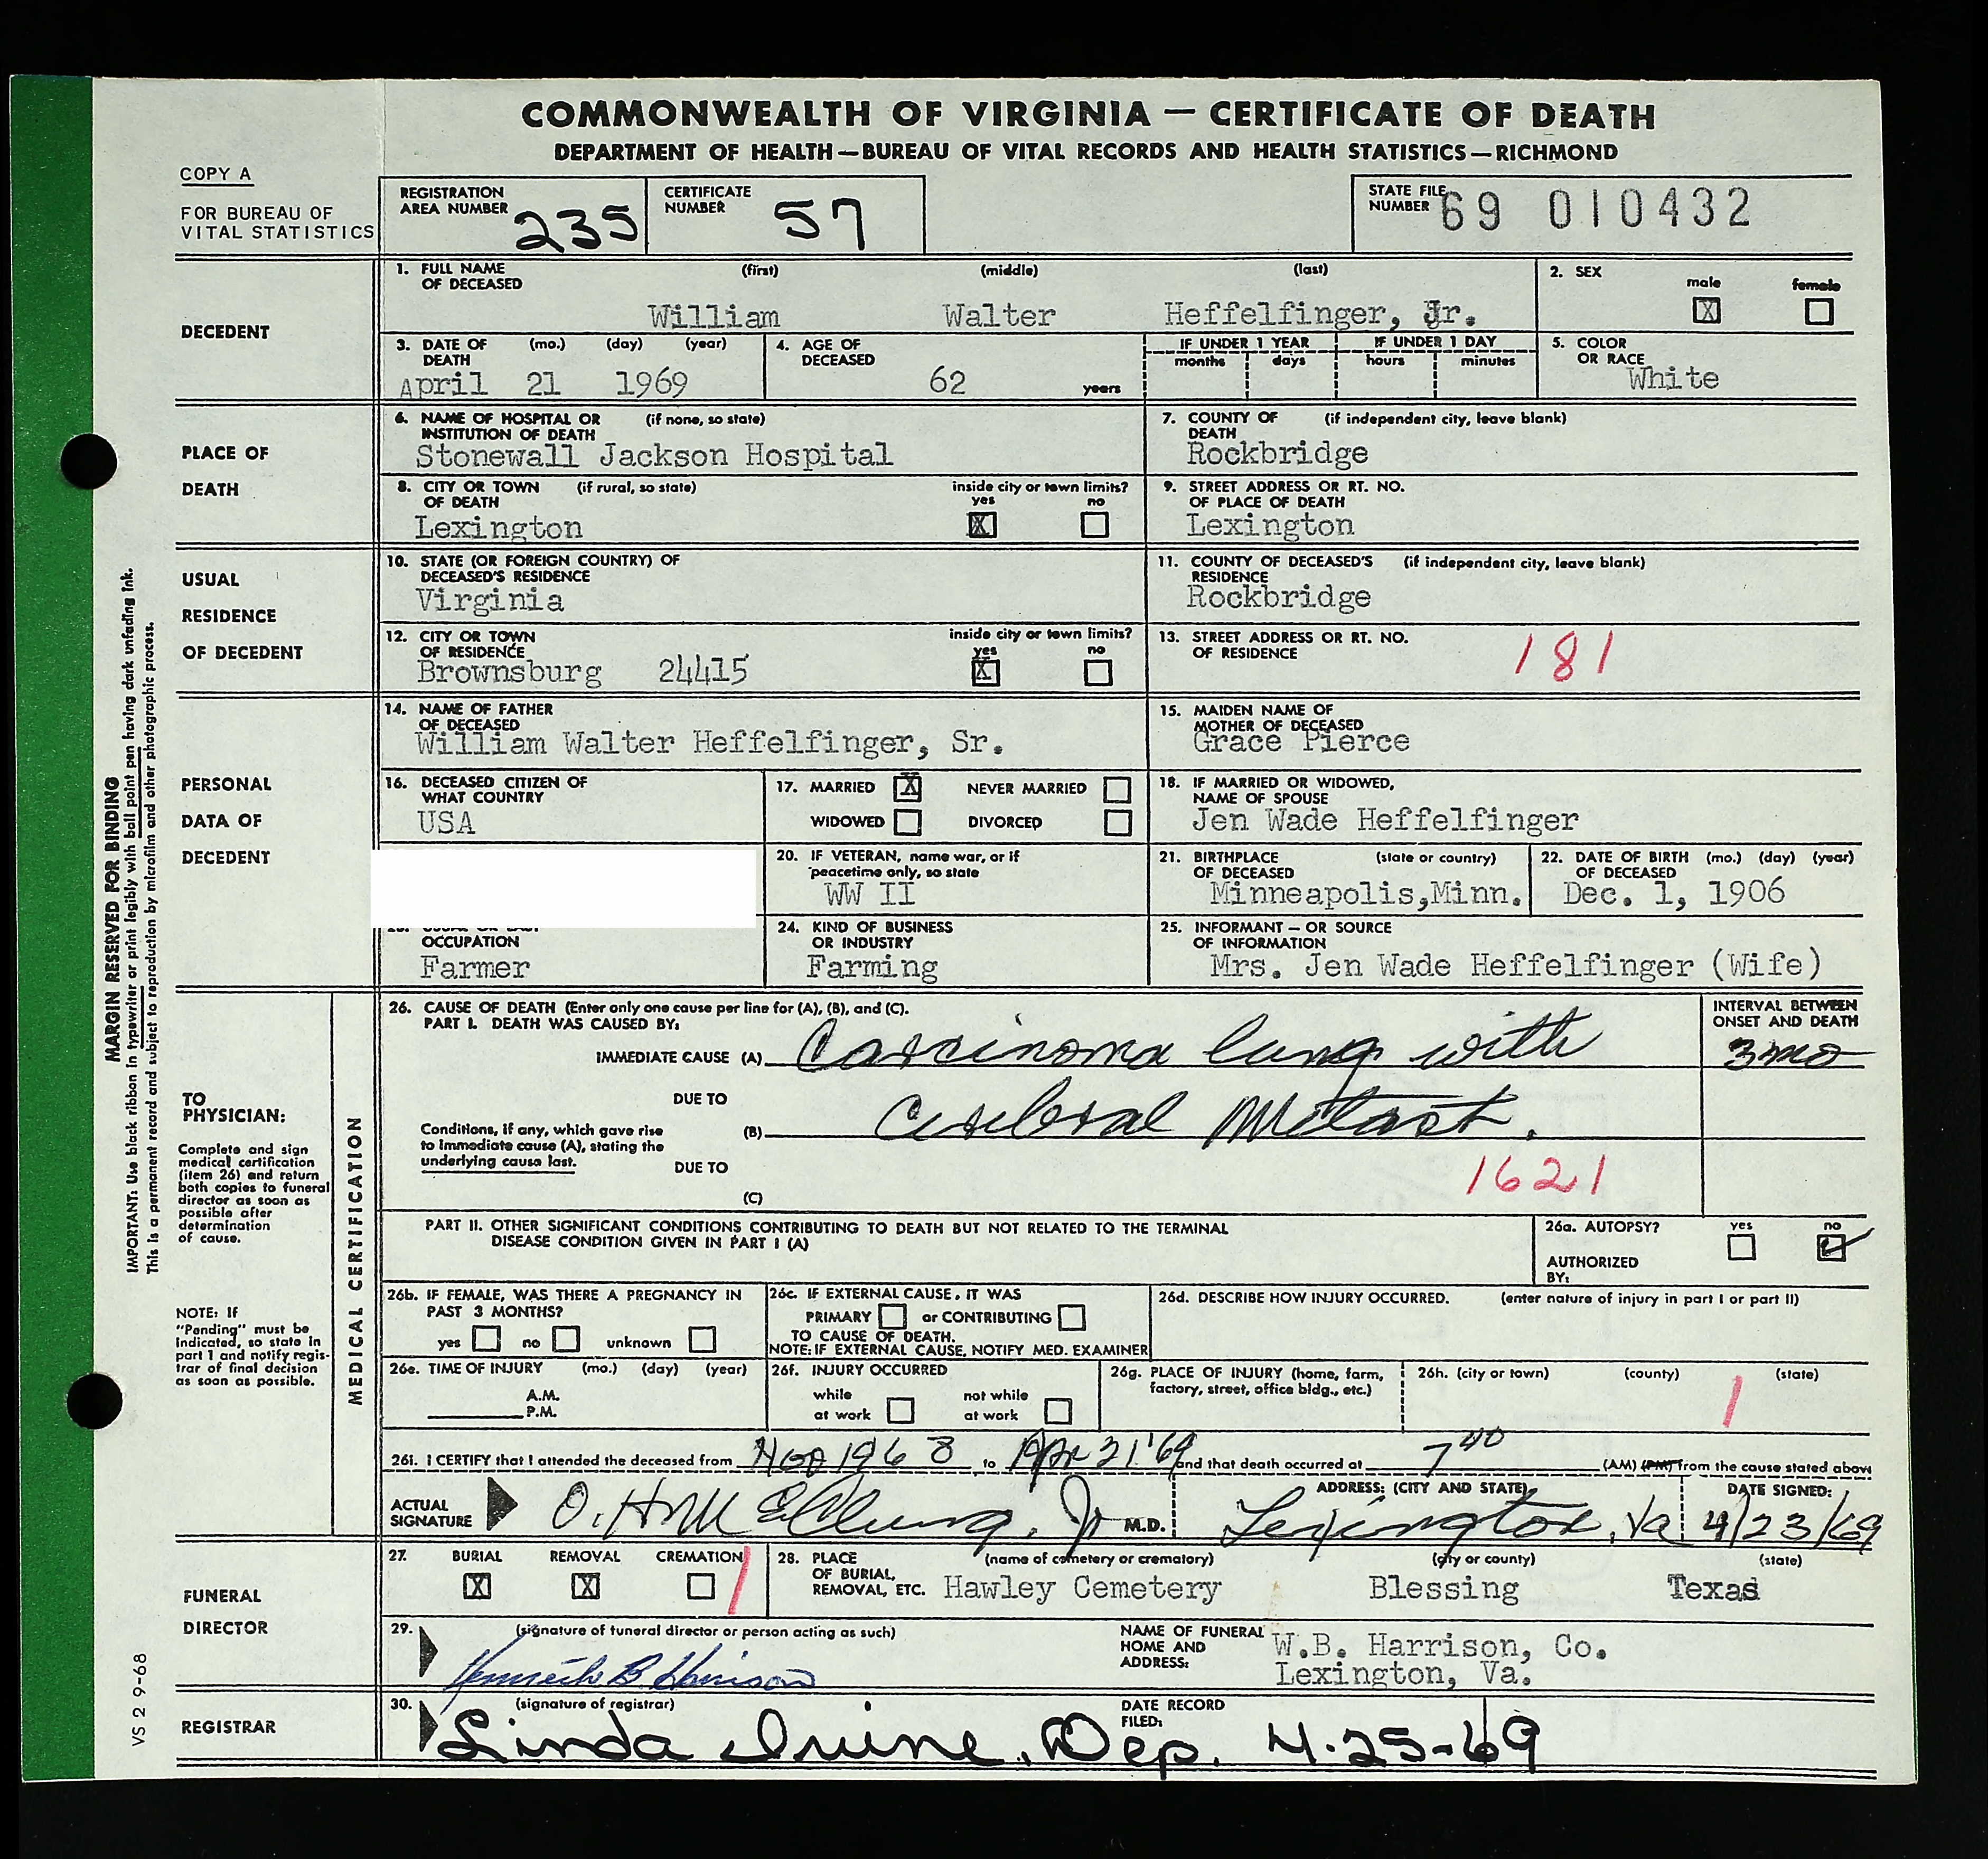 COMMONWEALTH OF VIRGINIA — CERTIFICATE OF DEATH
DEPARTMENT OF HEALTH—BUREAU OF VITAL RECORDS AND HEALTH STATISTICS—RICHMOND
COPY A
FOR BUREAU OF
VITAL STATISTICS
REGISTRATION
AREA NUMBER 235
CERTIFICATE
NUMBER 57
STATE FILE
NUMBER 69 010432
DECEDENT
1. FULL NAME (first) (middle) (last)
OF DECEASED
William Walter Heffelfinger, Jr.
2. SEX
male female
X
3. DATE OF (mo.) (day) (year)
DEATH
April 21 1969
4. AGE OF
DECEASED
62 years
IF UNDER 1 YEAR IF UNDER 1 DAY
months days hours minutes
5. COLOR
OR RACE
White
PLACE OF
DEATH
6. NAME OF HOSPITAL OR (if none, so state)
INSTITUTION OF DEATH
Stonewall Jackson Hospital
7. COUNTY OF (if independent city, leave blank)
DEATH
Rockbridge
8. CITY OR TOWN (if rural, so state) inside city or town limits?
OF DEATH yes no
Lexington X
9. STREET ADDRESS OR RT. NO.
OF PLACE OF DEATH
Lexington
USUAL
RESIDENCE
OF DECEDENT
10. STATE (OR FOREIGN COUNTRY) OF
DECEASED'S RESIDENCE
Virginia
11. COUNTY OF DECEASED'S (if independent city, leave blank)
RESIDENCE
Rockbridge
12. CITY OR TOWN inside city or town limits?
OF RESIDENCE yes no
Brownsburg 24415 X
13. STREET ADDRESS OR RT. NO.
OF RESIDENCE
181
PERSONAL
DATA OF
DECEDENT
14. NAME OF FATHER
OF DECEASED
William Walter Heffelfinger, Sr.
15. MAIDEN NAME OF
MOTHER OF DECEASED
Grace Pierce
16. DECEASED CITIZEN OF
WHAT COUNTRY
USA
17. MARRIED X NEVER MARRIED
WIDOWED DIVORCED
18. IF MARRIED OR WIDOWED,
NAME OF SPOUSE
Jen Wade Heffelfinger
20. IF VETERAN, name war, or if
peacetime only, so state
WW II
21. BIRTHPLACE (state or country)
OF DECEASED
Minneapolis,Minn.
22. DATE OF BIRTH (mo.) (day) (year)
OF DECEASED
Dec. 1, 1906
OCCUPATION
Farmer
24. KIND OF BUSINESS
OR INDUSTRY
Farming
25. INFORMANT — OR SOURCE
OF INFORMATION
Mrs. Jen Wade Heffelfinger (Wife)
TO
PHYSICIAN:
Complete and sign
medical certification
(item 26) and return
both copies to funeral
director as soon as
possible after
determination
of cause.
NOTE: If
"Pending" must be
indicated, so state in
part 1 and notify regis-
trar of final decision
as soon as possible.
MEDICAL CERTIFICATION
26. CAUSE OF DEATH (Enter only one cause per line for (A), (B), and (C).
PART I. DEATH WAS CAUSED BY:
INTERVAL BETWEEN
ONSET AND DEATH
IMMEDIATE CAUSE (A) Carcinoma lung with 3 mo
DUE TO
Conditions, if any, which gave rise
to immediate cause (A), stating the
underlying cause last.
(B) Cerebral Metast.
DUE TO
1621
(C)
PART II. OTHER SIGNIFICANT CONDITIONS CONTRIBUTING TO DEATH BUT NOT RELATED TO THE TERMINAL
DISEASE CONDITION GIVEN IN PART I (A)
26a. AUTOPSY? yes no
AUTHORIZED
BY:
26b. IF FEMALE, WAS THERE A PREGNANCY IN
PAST 3 MONTHS?
yes no unknown
26c. IF EXTERNAL CAUSE, IT WAS
PRIMARY or CONTRIBUTING
TO CAUSE OF DEATH.
NOTE: IF EXTERNAL CAUSE, NOTIFY MED. EXAMINER
26d. DESCRIBE HOW INJURY OCCURRED. (enter nature of injury in part I or part II)
26e. TIME OF INJURY (mo.) (day) (year)
A.M.
P.M.
26f. INJURY OCCURRED
while not while
at work at work
26g. PLACE OF INJURY (home, farm,
factory, street, office bldg., etc.)
26h. (city or town) (county) (state)
1
26i. I CERTIFY that I attended the deceased from Nov 1968 to Apr 21 '69 and that death occurred at 7 40 (AM) (PM) from the cause stated above
ACTUAL
SIGNATURE O. H. McClung, Jr M.D.
ADDRESS: (CITY AND STATE)
Lexington, Va
DATE SIGNED:
4/23/69
FUNERAL
DIRECTOR
27. BURIAL REMOVAL CREMATION
X X 1
28. PLACE (name of cemetery or crematory) (city or county) (state)
OF BURIAL,
REMOVAL, ETC. Hawley Cemetery Blessing Texas
29. (signature of funeral director or person acting as such)
Kenneth B Harrison
NAME OF FUNERAL
HOME AND
ADDRESS:
W.B. Harrison, Co.
Lexington, Va.
REGISTRAR
30. (signature of registrar)
Linda Irvine, Dep.
DATE RECORD
FILED:
4-25-69
MARGIN RESERVED FOR BINDING
IMPORTANT: Use black ribbon in typewriter or print legibly with ball point pen having dark unfading ink.
This is a permanent record and subject to reproduction by microfilm and other photographic process.
VS 2 9-68